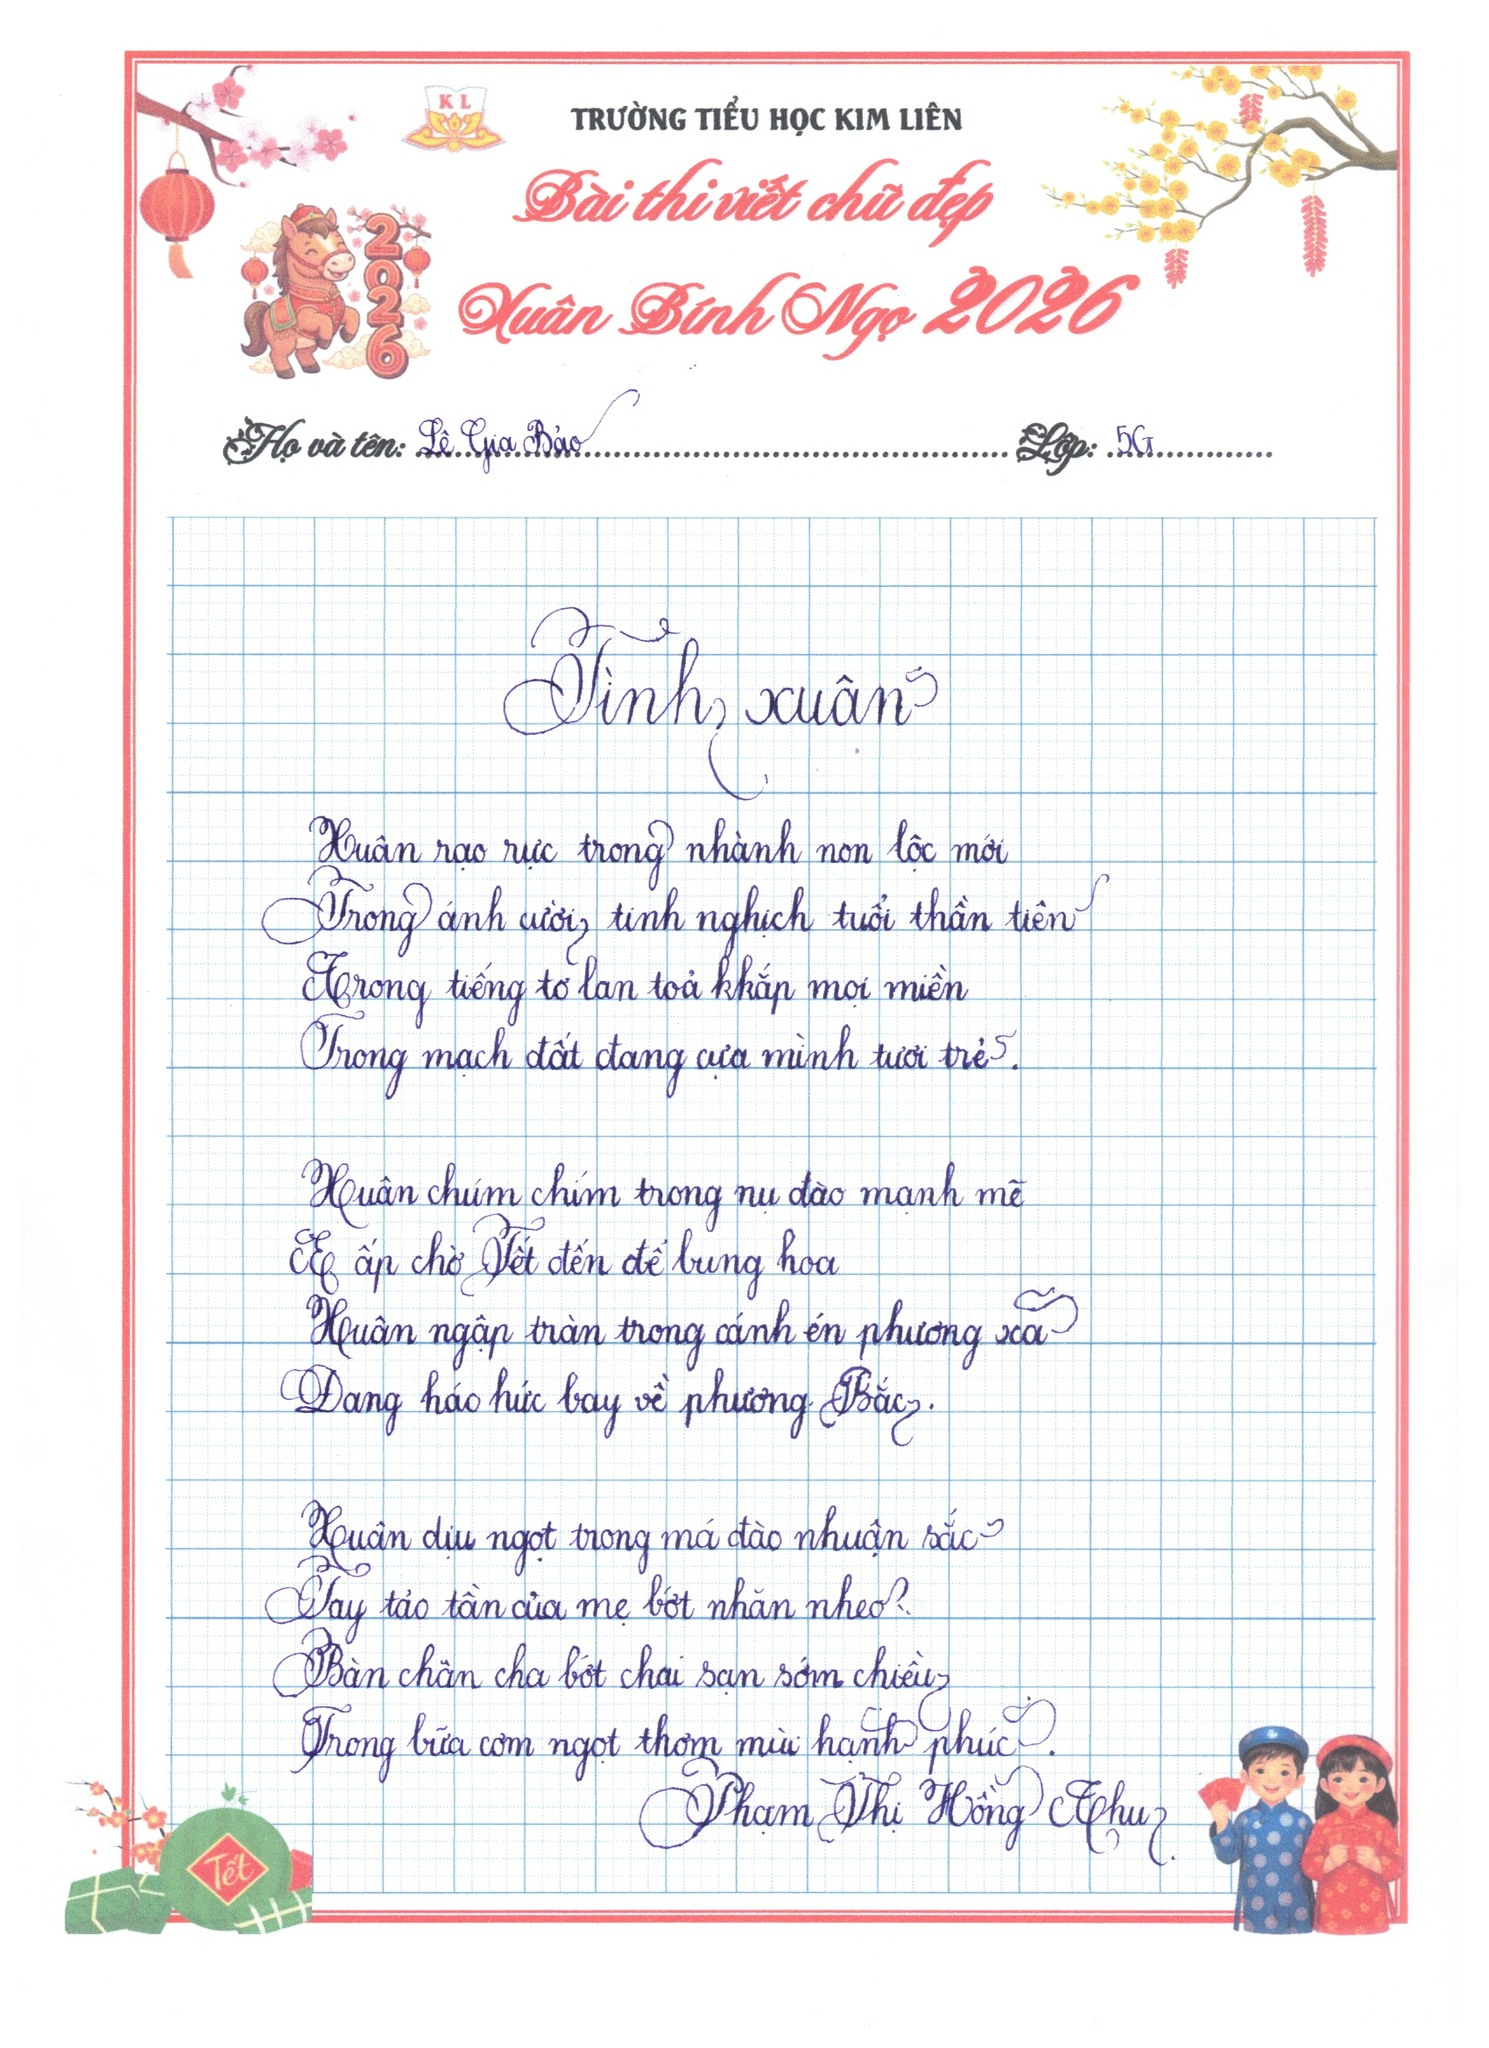 K L
TRƯỜNG TIỂU HỌC KIM LIÊN
Bài thi viết chữ đẹp
2026
Xuân Bính Ngọ 2026
Họ và tên: Lê Gia Bảo Lớp: 5G
Tình xuân
Xuân rạo rực trong nhành non lộc mới
Trong ánh cười, tinh nghịch tuổi thần tiên
Trong tiếng tơ lan toả khắp mọi miền
Trong mạch đất đang cựa mình tươi trẻ.
Xuân chúm chím trong nụ đào mạnh mẽ
E ấp chờ Tết đến để bung hoa
Xuân ngập tràn trong cánh én phương xa
Đang háo hức bay về phương Bắc.
Xuân dịu ngọt trong má đào nhuận sắc
Tay tảo tần của mẹ bớt nhăn nheo
Bàn chân cha bớt chai sạn sớm chiều
Trong bữa cơm ngọt thơm mùi hạnh phúc.
Phạm Thị Hồng Thu
Tết